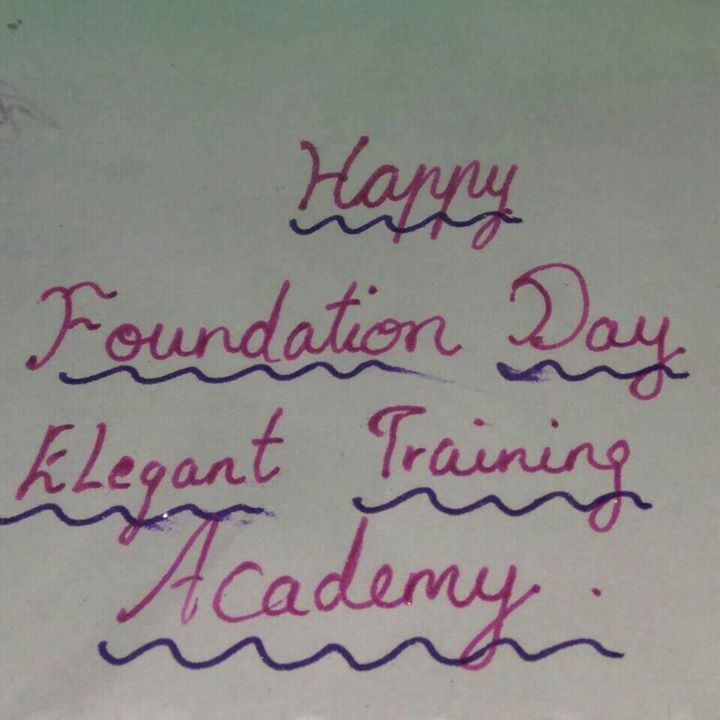 Happy
Foundation Day
Elegant Training
Academy.